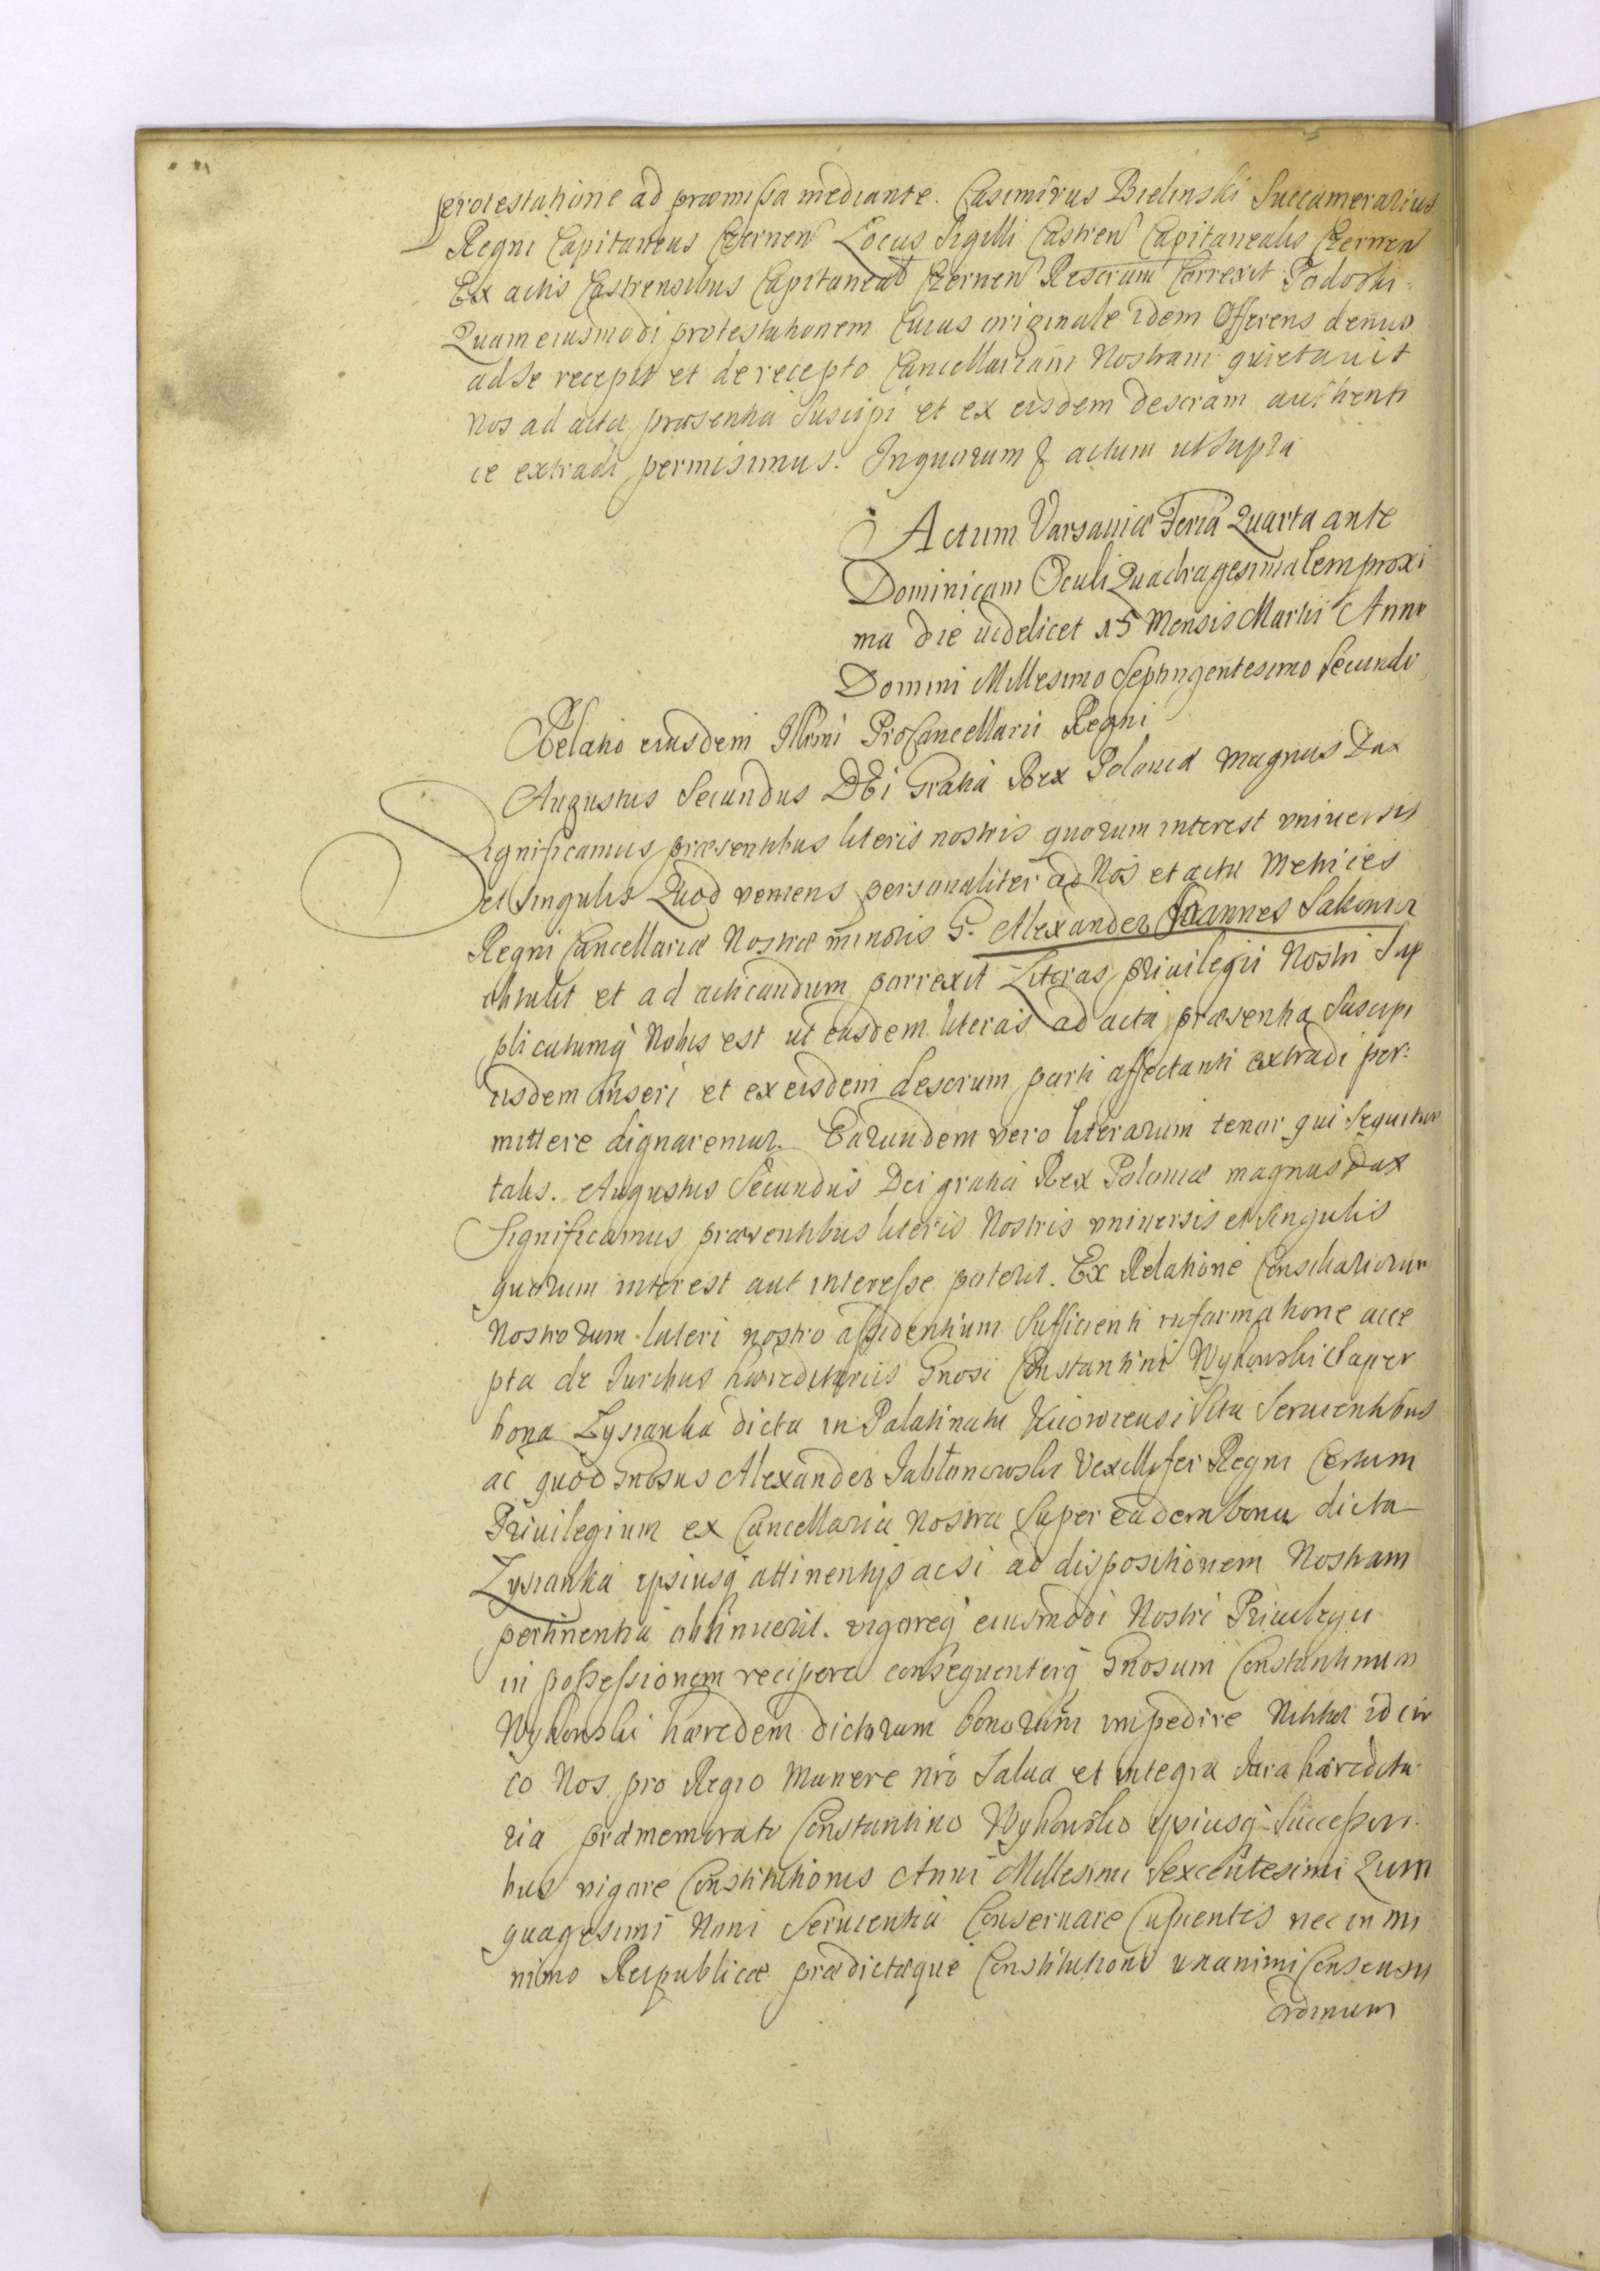 protestatione ad præmissa mediante. Casimirus Bielinski Succamerarius
Regni Capitaneus Czernen Locus Sigilli Castren Capitanealis Czernen
Ex actis Castrensibus Capitaneal Czernen Rescrum Correxit Podoski.
Quam eiusmodi protestationem Cuius originale idem Offerens denuo
ad se recepit et de recepto Cancellariam Nostram quietauit
Nos ad acta præsentia Suscipi et ex eisdem descram authenti
ce extradi permisimus. In quorum actum ut Supra
Actum Varsauiæ Feria Quarta ante
Dominicam Oculi Quadragesimalem proxi
ma die videlicet 15 Mensis Martii Anno
Domini Millesimo Septingentesimo Secundo
Relatio eiusdem Illrmi ProCancellarii Regni
Augustus Secundus DEi Gratia Rex Poloniæ magnus Dux
Significamus præsentibus literis nostris quorum interest vniuersis
et Singulis Quod veniens personaliter ad Nos et acta Metrices
Regni Cancellariæ Nostræ minoris G. Alexander Joannes
obtulit et ad acticandum porrexit Literas priuilegii Nostri Sup
plicatumq Nobis est ut easdem literas ad acta præsentia Suscipi
eisdem inseri et ex eisdem descrum parti affectanti extradi per:
mittere dignaremur. Earundem vero literarum tenor qui Sequitur
talis. Augustus Secundus Dei gratia Rex Poloniæ magnus Dux
Significamus præsentibus literis Nostris vniuersis et Singulis
quorum interest aut interesse poterit. Ex Relatione Consiliariorum
Nostrorum lateri nostro assidentium Sufficienti informatione acce
pta de Juribus hæreditariis Gnosi Constantini Wyhowski Super
bona Lysianka dicta in Palatinatu Kiiowiensi Sita Seruientibus
ac quod Gnosus Alexander Jabłonowski Vexillifer Regni Certum
Priuilegium ex Cancellaria Nostra Super eadem bona dicta
Lysianka ipsiusq attinentijs acsi ad dispositionem Nostram
pertinentia obtinuerit. vigoreq eiusmodi Nostri Priuilegii
in possessionem recipere consequenterq Gnosum Constantinum
Wyhowski hæredem dictorum bonorum impedire Nititur idcir
co Nos pro Regio Munere nro Salua et integra Jura hæredita
ria præmemorato Constantino Wyhowski ipsiusq Successori
bus vigore Constitutionis Anni Millesimi Sexcentesimi Quin
quagesimi Noni Seruientia Conseruare Cupientes nec in mi
nimo Reipublicæ prædictæque Constitutioni vnanimi Consensu
ordinum